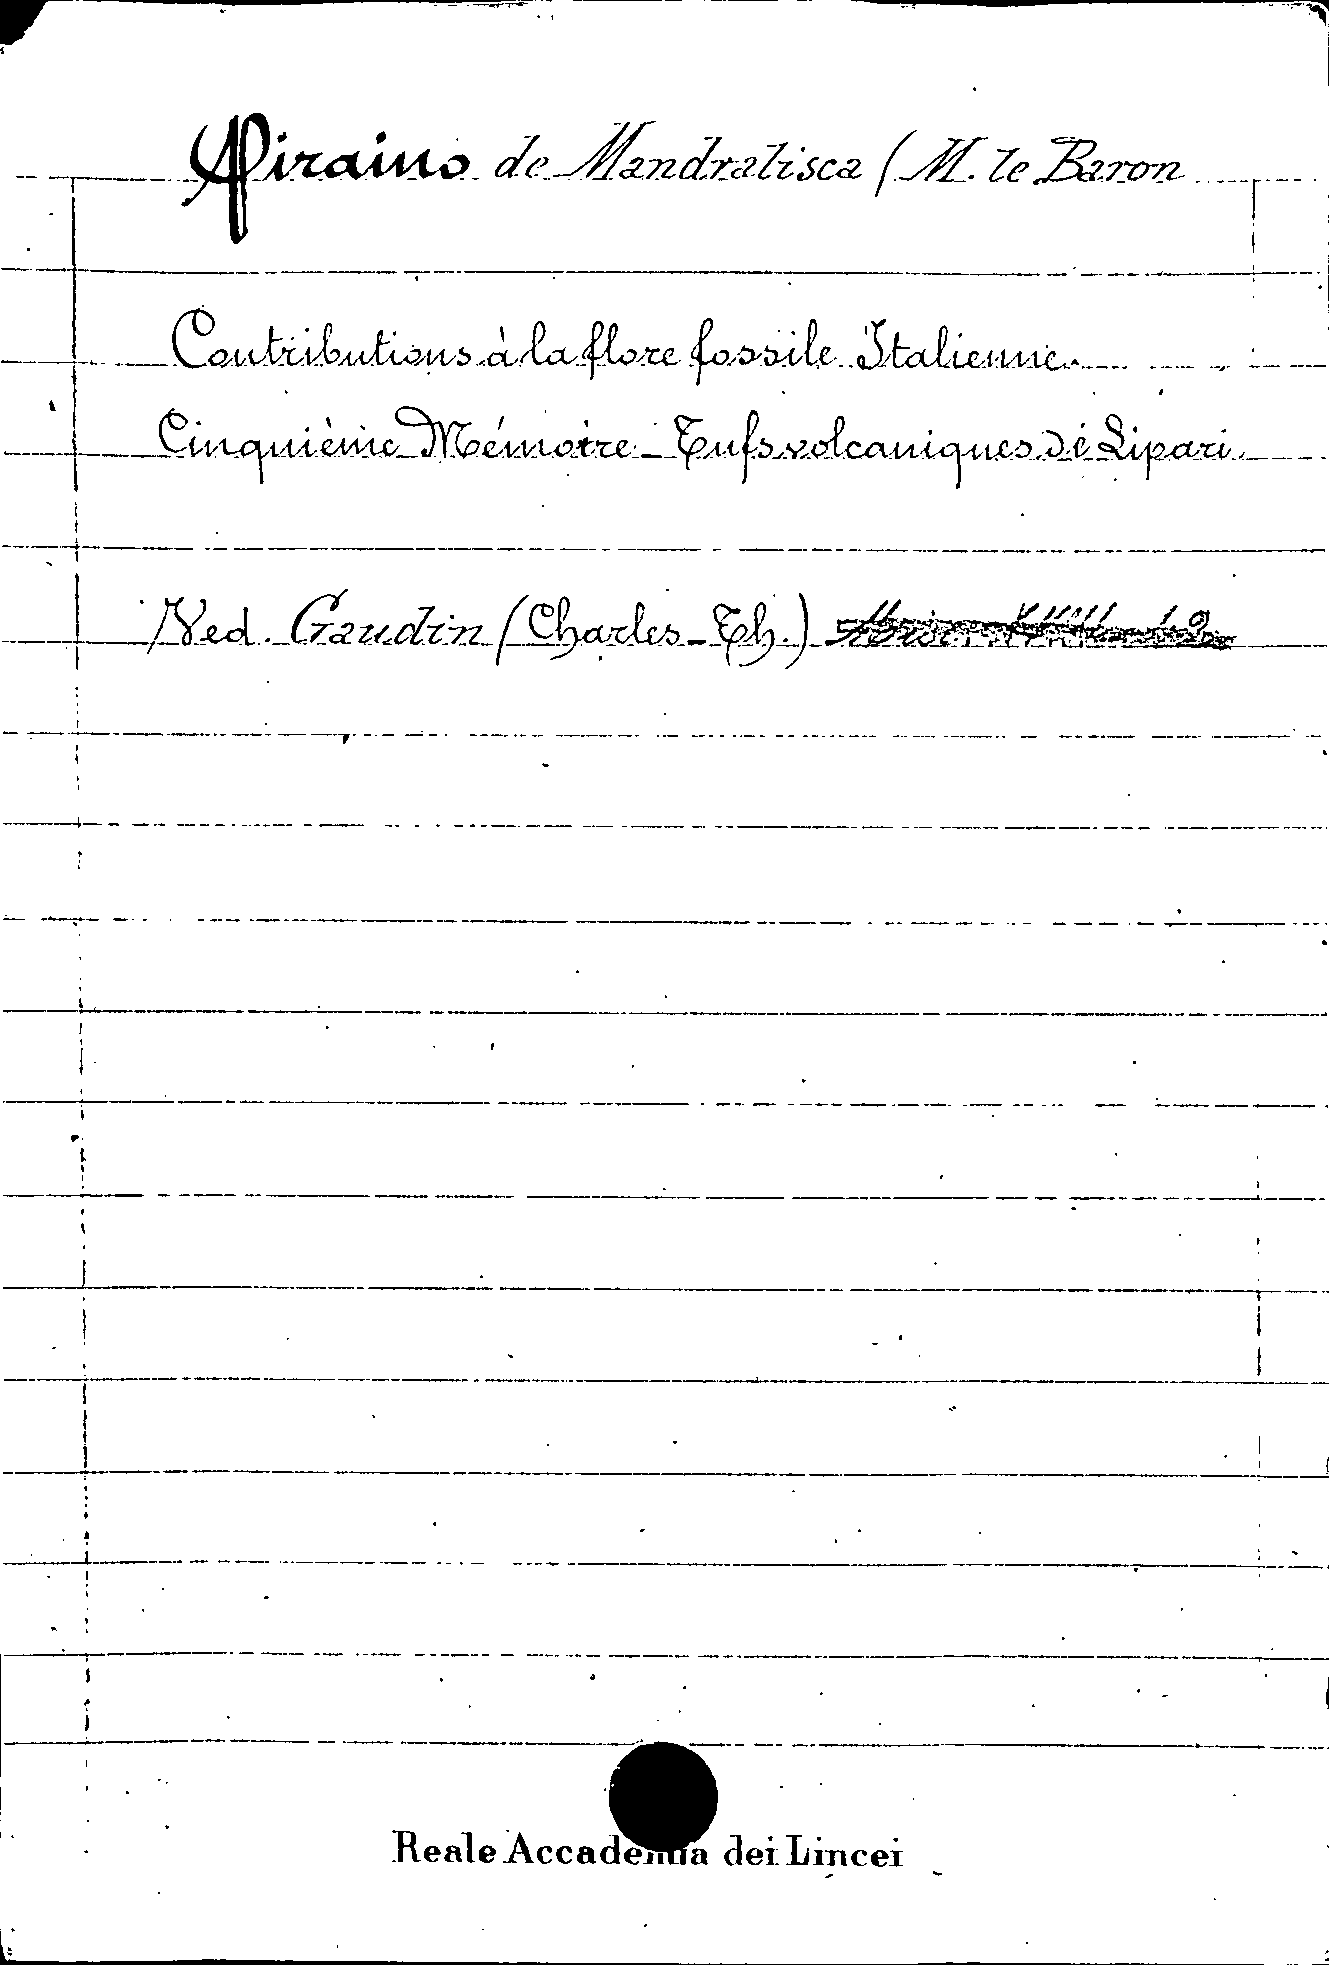 Piraino de Mandralisca (M. le Baron
Contributions à la flore fossile Italienne.
Cinquième Mémoire - Tufs volcaniques de Lipari.
Ved. Gaudin (Charles-Th.)
Reale Accademia dei Lincei